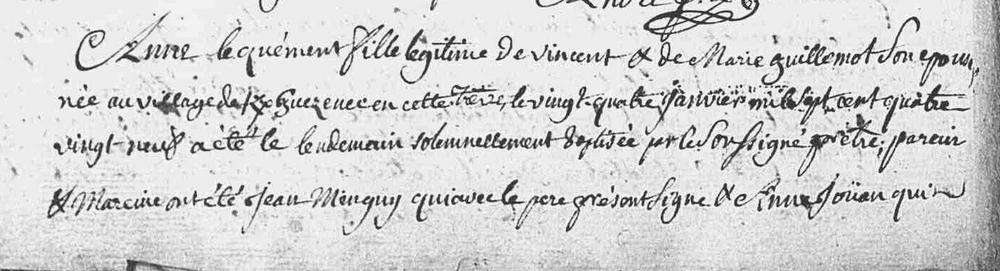 Anne lequément fille legitime de vincent & de Marie guillemot Son epouse
née au village de en cette Treve le vingt-quatre janvier mil sept cent quatre
vingt neuf a été le lendemain solemnellement batisée par le Soussigné prêtre; parein
& Mareine ont été jean Minguy qui avec le pere présent Signe & Anne joüan qui n